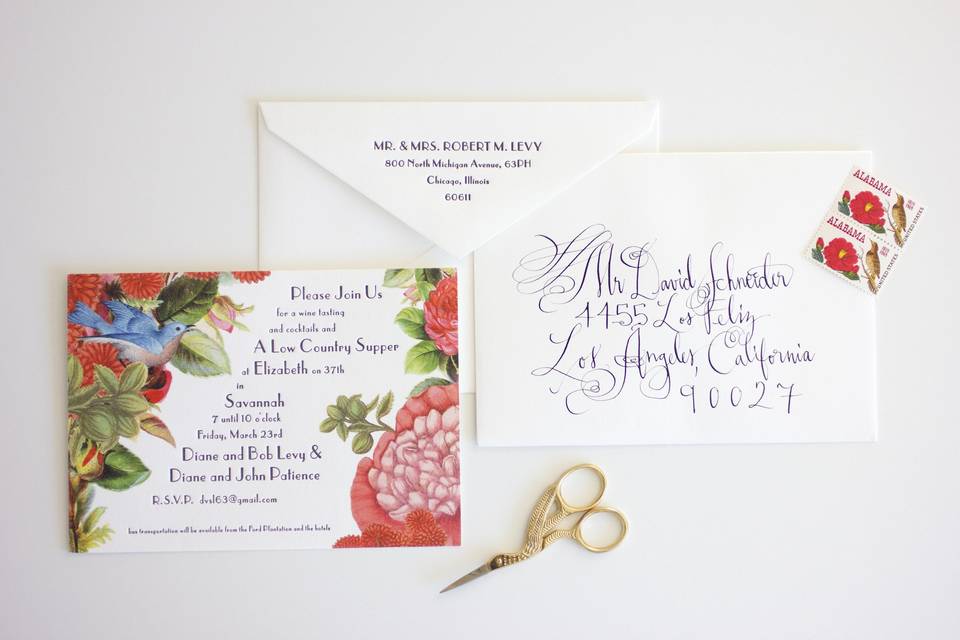 MR. & MRS. ROBERT M. LEVY
800 North Michigan Avenue, 63PH
Chicago, Illinois
60611
ALABAMA
UNITED STATES
ALABAMA
UNITED STATES
Mr David Schneider
4455 Los Feliz
Los Angeles, California
90027
Please Join Us
for a wine tasting
and cocktails and
A Low Country Supper
at Elizabeth on 37th
in
Savannah
7 until 10 o'clock
Friday, March 23rd
Diane and Bob Levy &
Diane and John Patience
R.S.V.P. dvsl63@gmail.com
bus transportation will be available from the Ford Plantation and the hotels